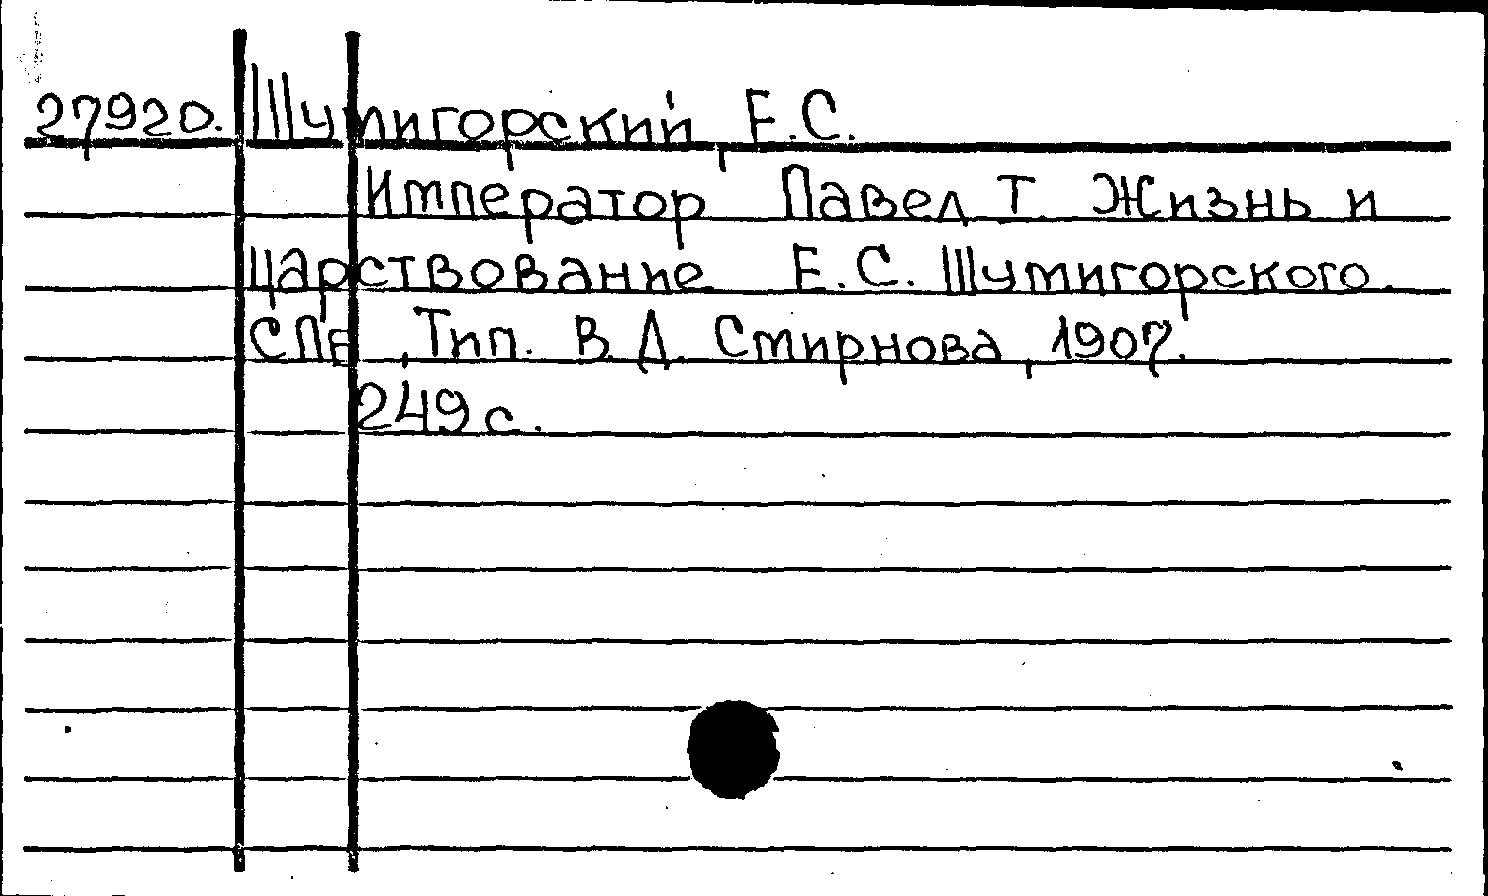 27920. Шумигорский, Е.С.
Император Павел I. Жизнь и
царствование Е.С. Шумигорского.
СПБ, Тип. В.Д. Смирнова, 1907.
249 с.